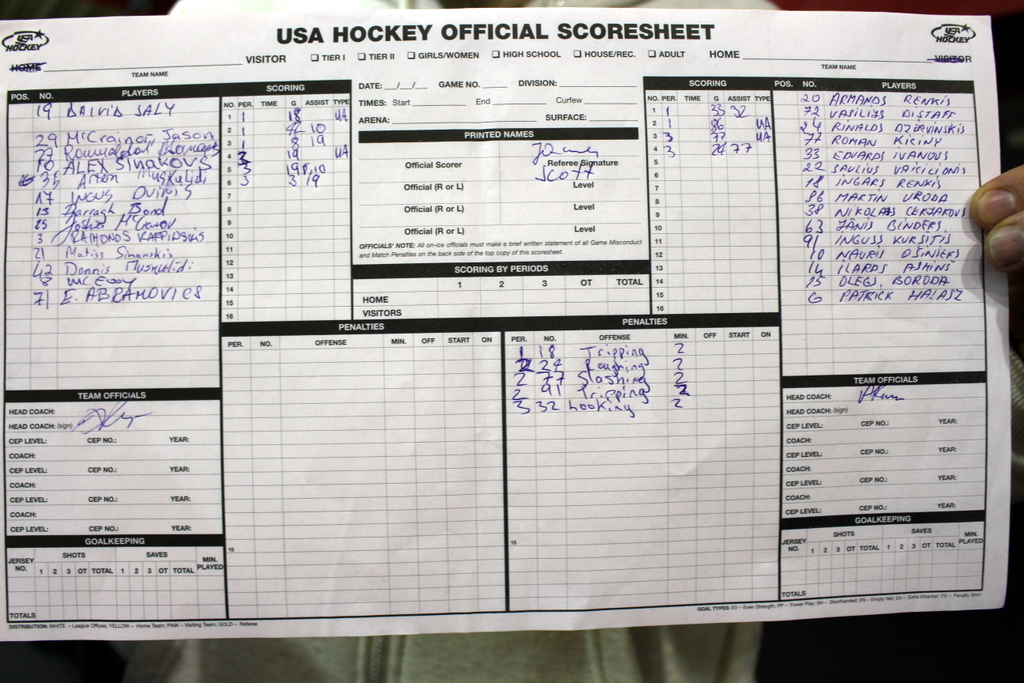 USA HOCKEY OFFICIAL SCORESHEET
USA HOCKEY
HOME VISITOR ☐ TIER I ☐ TIER II ☐ GIRLS/WOMEN ☐ HIGH SCHOOL ☐ HOUSE/REC. ☐ ADULT HOME VISITOR
TEAM NAME TEAM NAME
POS. NO. PLAYERS
19 DAIVID SALY
29 McCrainor, Jason
27
10 ALEX SINAKOVS
35 Arton Muskulidi
17 INGUS
15 Darragh Bond
85
3 RAIMONDS
21 Matiss Simanskis
42 Dennis Muskulidi
8 McEvoy
71 E. ABRAMOVICS
SCORING
NO. PER. TIME G ASSIST TYPE
1 1 18 UA
2 1 42 10
3 1 8 19
4 3 19 UA
5 3 19 10
6 3 3 19
7
8
9
10
11
12
13
14
15
16
DATE: __/__/__ GAME NO. DIVISION:
TIMES: Start End Curfew
ARENA: SURFACE:
PRINTED NAMES
Official Scorer Referee Signature
SCOTT
Official (R or L) Level
Official (R or L) Level
Official (R or L) Level
OFFICIALS' NOTE: All on-ice officials must make a brief written statement of all Game Misconduct
and Match Penalties on the back side of the top copy of this scoresheet.
SCORING BY PERIODS
1 2 3 OT TOTAL
HOME
VISITORS
SCORING
NO. PER. TIME G ASSIST TYPE
1 1 33 32
2 1 86 UA
3 3 77 UA
4 3 24 77
5
6
7
8
9
10
11
12
13
14
15
16
POS. NO. PLAYERS
20 ARMANDS RENKIS
72 VASILIJS DISTAFF
24 RINALDS DZERVINSKIS
77 ROMAN KICINY
33 EDUARDS IVANOVS
22 SAULIUS VAICILIONIS
18 INGARS RENKIS
86 MARTIN URODA
38 NIKOLAJS CERJAKOVS
63 JANIS BINDERS
91 INGUSS KURSITIS
10 NAURIS OSINIEKS
14 ILARDS ASMINS
15 OLEGS, BORODA
G PATRICK HALASZ
PENALTIES
PER. NO. OFFENSE MIN. OFF START ON
15
PENALTIES
PER. NO. OFFENSE MIN. OFF START ON
1 18 Tripping 2
2 24 Roughing 2
2 77 Slashing 2
2 91 Tripping 2
3 32 hooking 2
15
TEAM OFFICIALS
HEAD COACH:
HEAD COACH: (sign)
CEP LEVEL: CEP NO.: YEAR:
COACH:
CEP LEVEL: CEP NO.: YEAR:
COACH:
CEP LEVEL: CEP NO.: YEAR:
COACH:
CEP LEVEL: CEP NO.: YEAR:
GOALKEEPING
JERSEY NO. SHOTS SAVES MIN. PLAYED
1 2 3 OT TOTAL 1 2 3 OT TOTAL
TOTALS
TEAM OFFICIALS
HEAD COACH:
HEAD COACH: (sign)
CEP LEVEL: CEP NO.: YEAR:
COACH:
CEP LEVEL: CEP NO.: YEAR:
COACH:
CEP LEVEL: CEP NO.: YEAR:
COACH:
CEP LEVEL: CEP NO.: YEAR:
GOALKEEPING
JERSEY NO. SHOTS SAVES MIN. PLAYED
1 2 3 OT TOTAL 1 2 3 OT TOTAL
TOTALS
DISTRIBUTION: WHITE – League Offices; YELLOW – Home Team; PINK – Visiting Team; GOLD – Referee
GOAL TYPES: EV – Even Strength; PP – Power Play; SH – Shorthanded; EN – Empty Net; EA – Extra Attacker; PS – Penalty Shot